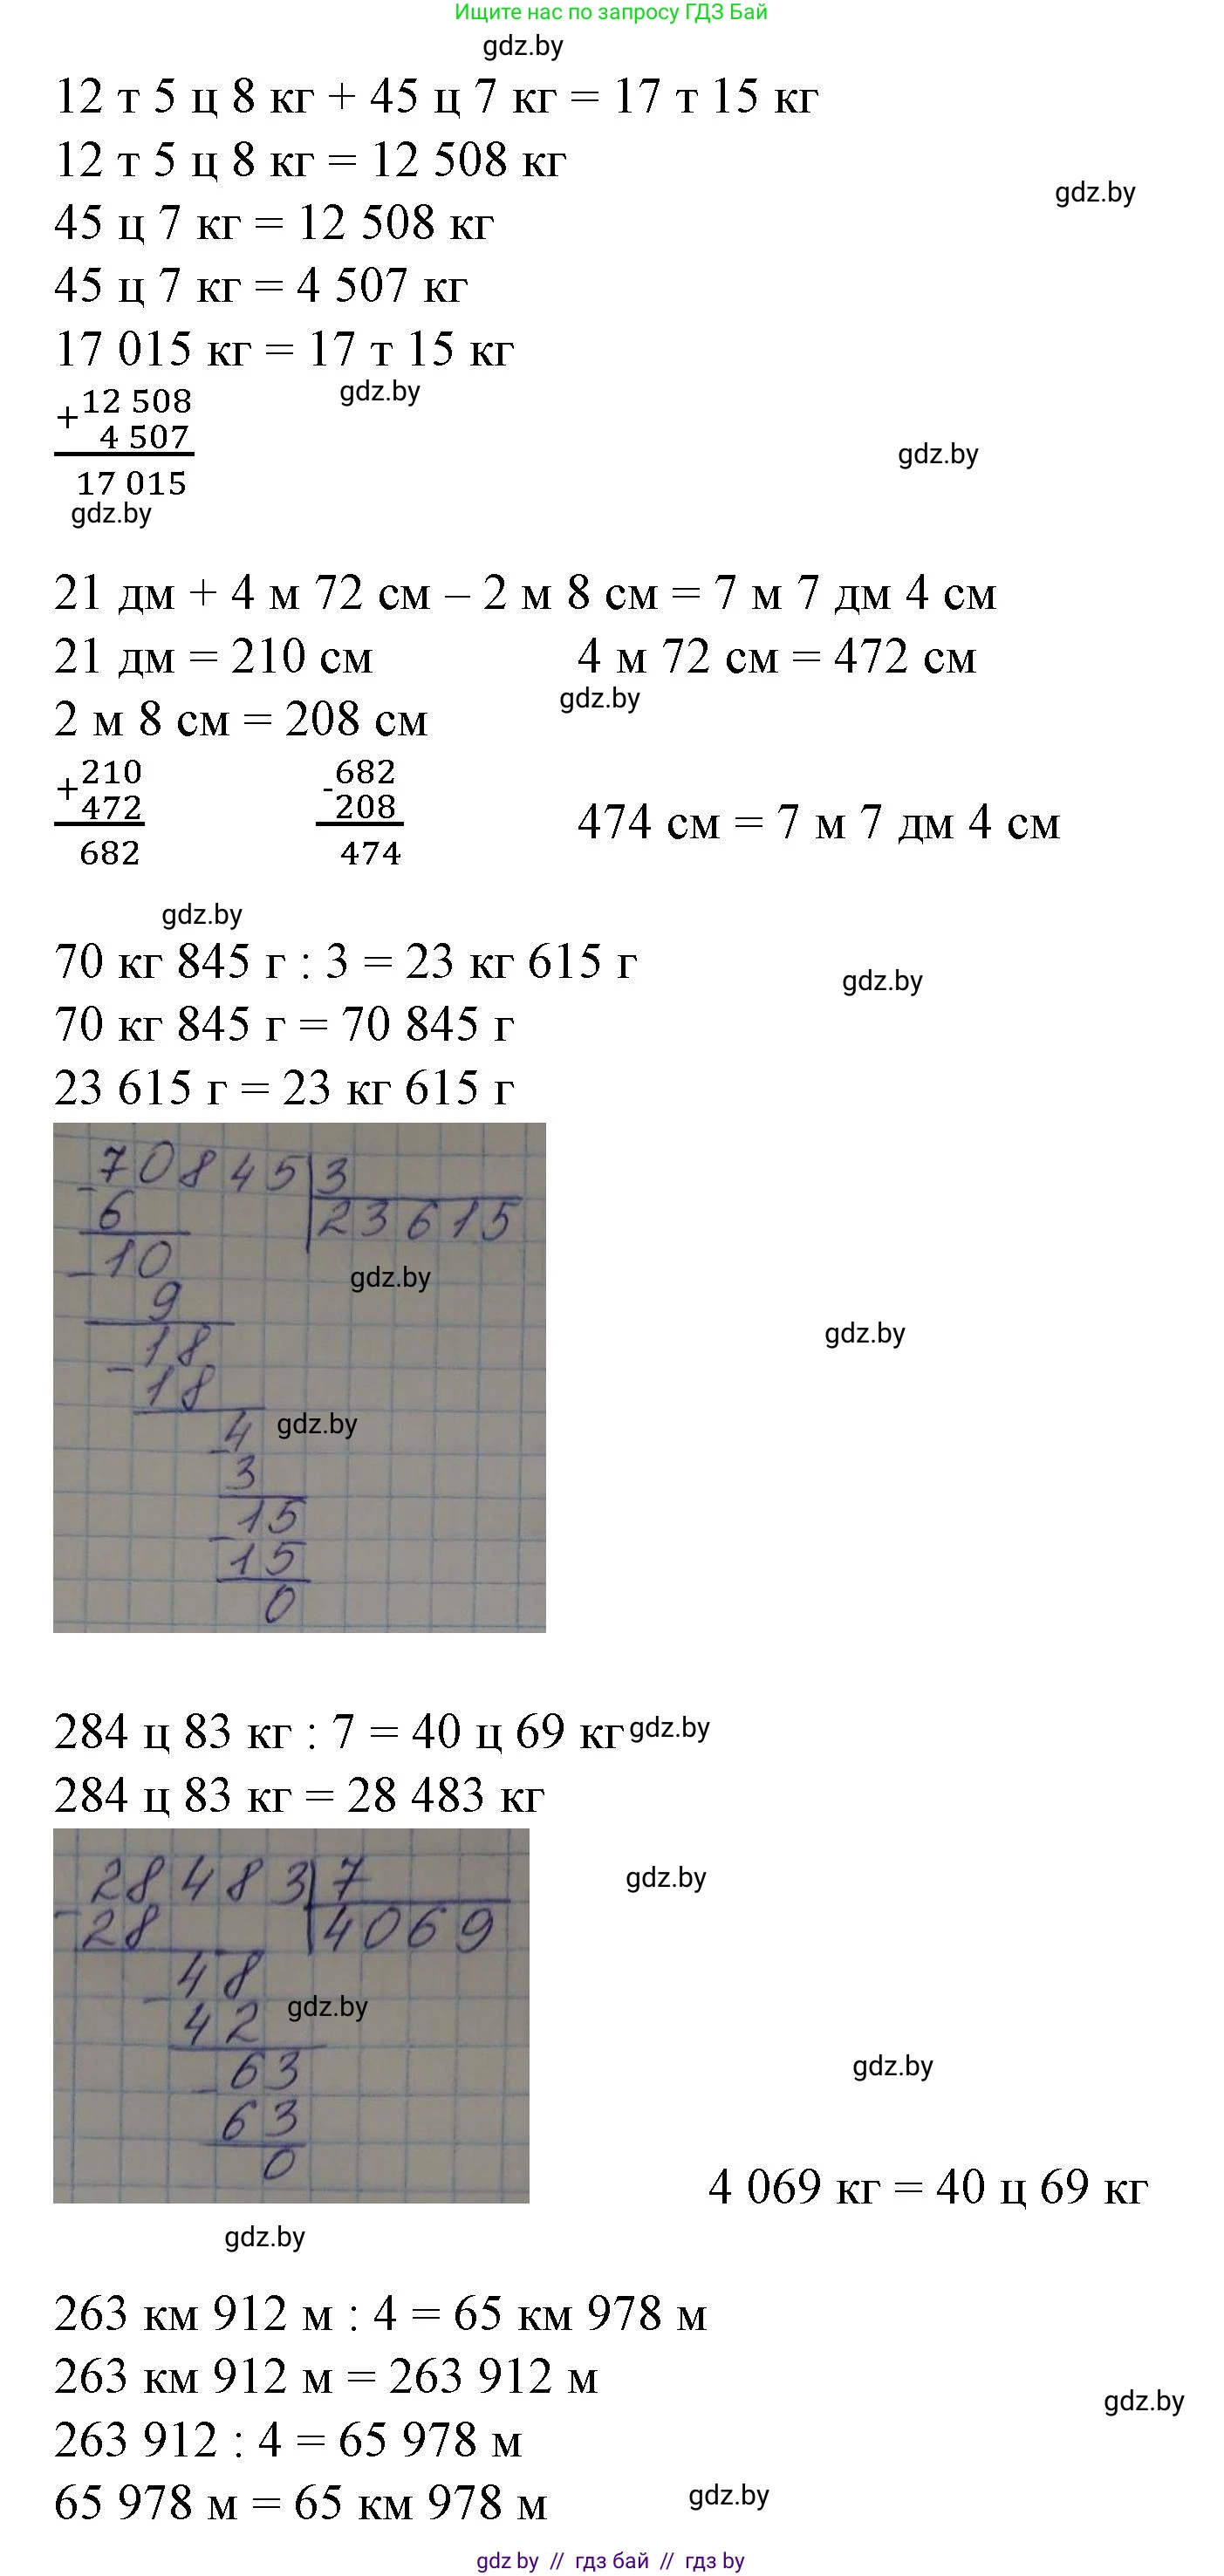 Ищите нас по запросу ГДЗ Бай
gdz.by
12 т 5 ц 8 кг + 45 ц 7 кг = 17 т 15 кг
12 т 5 ц 8 кг = 12 508 кг
gdz.by
45 ц 7 кг = 12 508 кг
45 ц 7 кг = 4 507 кг
17 015 кг = 17 т 15 кг
gdz.by
+ 12 508
4 507
gdz.by
17 015
gdz.by
21 дм + 4 м 72 см – 2 м 8 см = 7 м 7 дм 4 см
21 дм = 210 см 4 м 72 см = 472 см
gdz.by
2 м 8 см = 208 см
+ 210 - 682
472 208
474 см = 7 м 7 дм 4 см
682 474
gdz.by
70 кг 845 г : 3 = 23 кг 615 г
gdz.by
70 кг 845 г = 70 845 г
23 615 г = 23 кг 615 г
- 70845 3
6 23615
- 10
gdz.by
9
gdz.by
- 18
18
gdz.by
- 4
3
- 15
15
0
284 ц 83 кг : 7 = 40 ц 69 кг gdz.by
284 ц 83 кг = 28 483 кг
- 28483 7
gdz.by
28 4069
- 48
gdz.by
42
- 63
gdz.by
63
0
4 069 кг = 40 ц 69 кг
gdz.by
263 км 912 м : 4 = 65 км 978 м
263 км 912 м = 263 912 м
gdz.by
263 912 : 4 = 65 978 м
65 978 м = 65 км 978 м
gdz.by
gdz by // гдз бай // гдз by